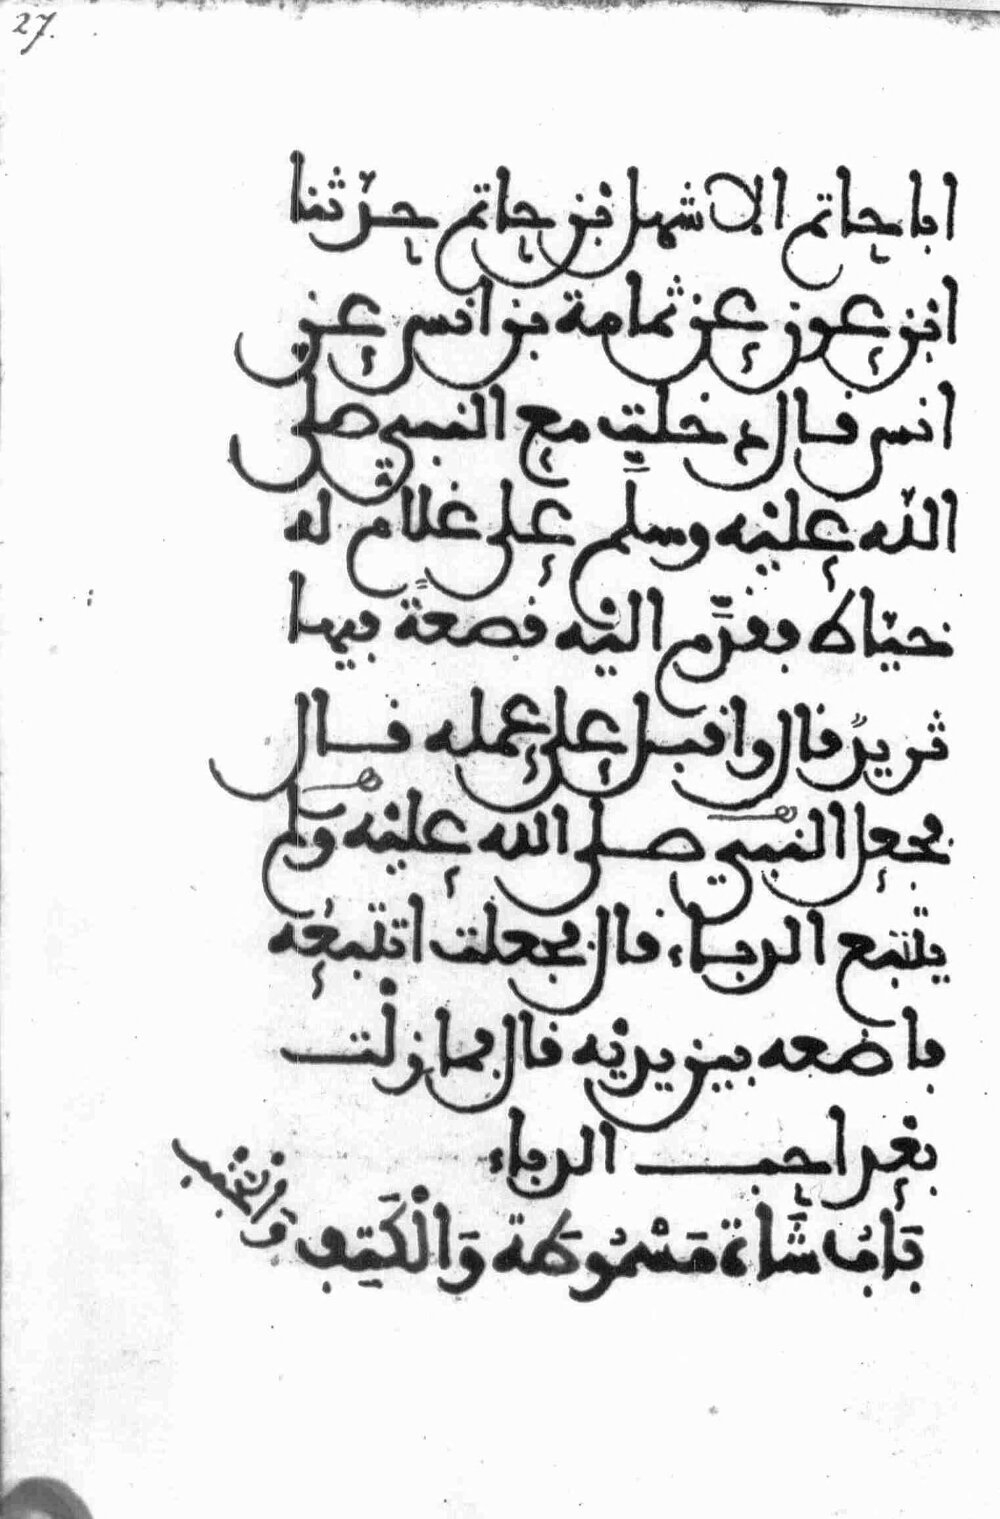 27.
ابا حاتم الاشهل بن حاتم حدّثنا
ابن عون عن ثمامة بن انس عن
انس قال دخلت مع النبي صلى
اللّه عليْه وسلّم على غلام له
خيّاط فقدّم اليْه قصعةً فيها
ثريدٌ قال واقبل على عمله قال
فجعل النبي صلى الله عليْه وسلم
يتتبّع الدباء قال فجعلت اتتبعُه
فاضعه بين يديْه قال فما زلْت
بعْد احب الدباء
بَابُ شَاة مَسْمُوطَة وَالْكَتِف
وَالْجَنْب